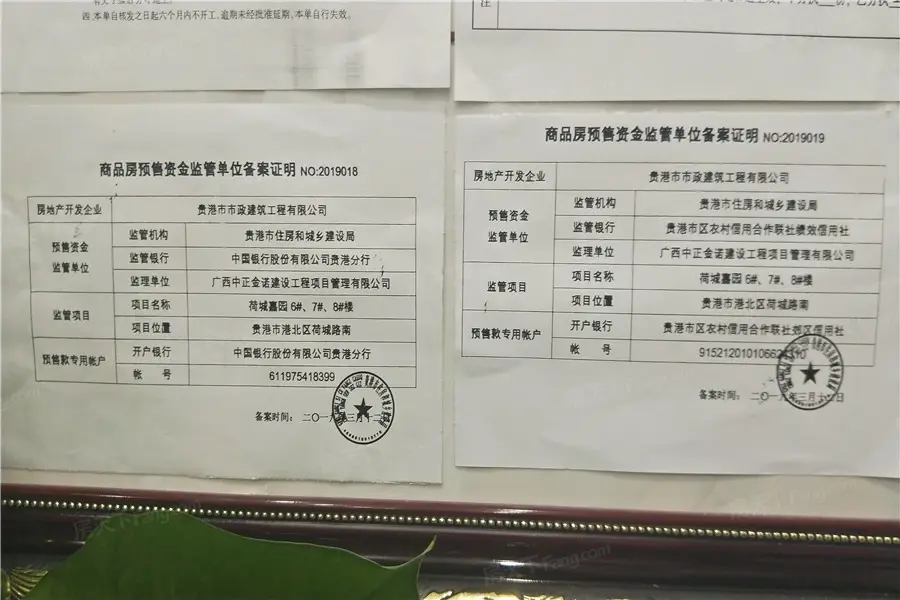 四、本单自核发之日起六个月内不开工,逾期未经批准延期、本单自行失效。
注
商品房预售资金监管单位备案证明 NO:2019018
房地产开发企业 贵港市市政建筑工程有限公司
预售资金监管单位 监管机构 贵港市住房和城乡建设局
监管银行 中国银行股份有限公司贵港分行
监理单位 广西中正金诺建设工程项目管理有限公司
监管项目 项目名称 荷城嘉园 6#、7#、8#楼
项目位置 贵港市港北区荷城路南
预售款专用帐户 开户银行 中国银行股份有限公司贵港分行
帐 号 611975418399
备案时间: 二〇一九年三月十二
商品房预售资金监管单位备案证明 NO:2019019
房地产开发企业 贵港市市政建筑工程有限公司
预售资金监管单位 监管机构 贵港市住房和城乡建设局
监管银行 贵港市区农村信用合作联社绩效信用社
监理单位 广西中正金诺建设工程项目管理有限公司
监管项目 项目名称 荷城嘉园 6#、7#、8#楼
项目位置 贵港市港北区荷城路南
预售款专用帐户 开户银行 贵港市区农村信用合作联社郊区信用社
帐 号
备案时间: 二〇一九年三月十二日
房天下Fang.com
房天下Fang.com